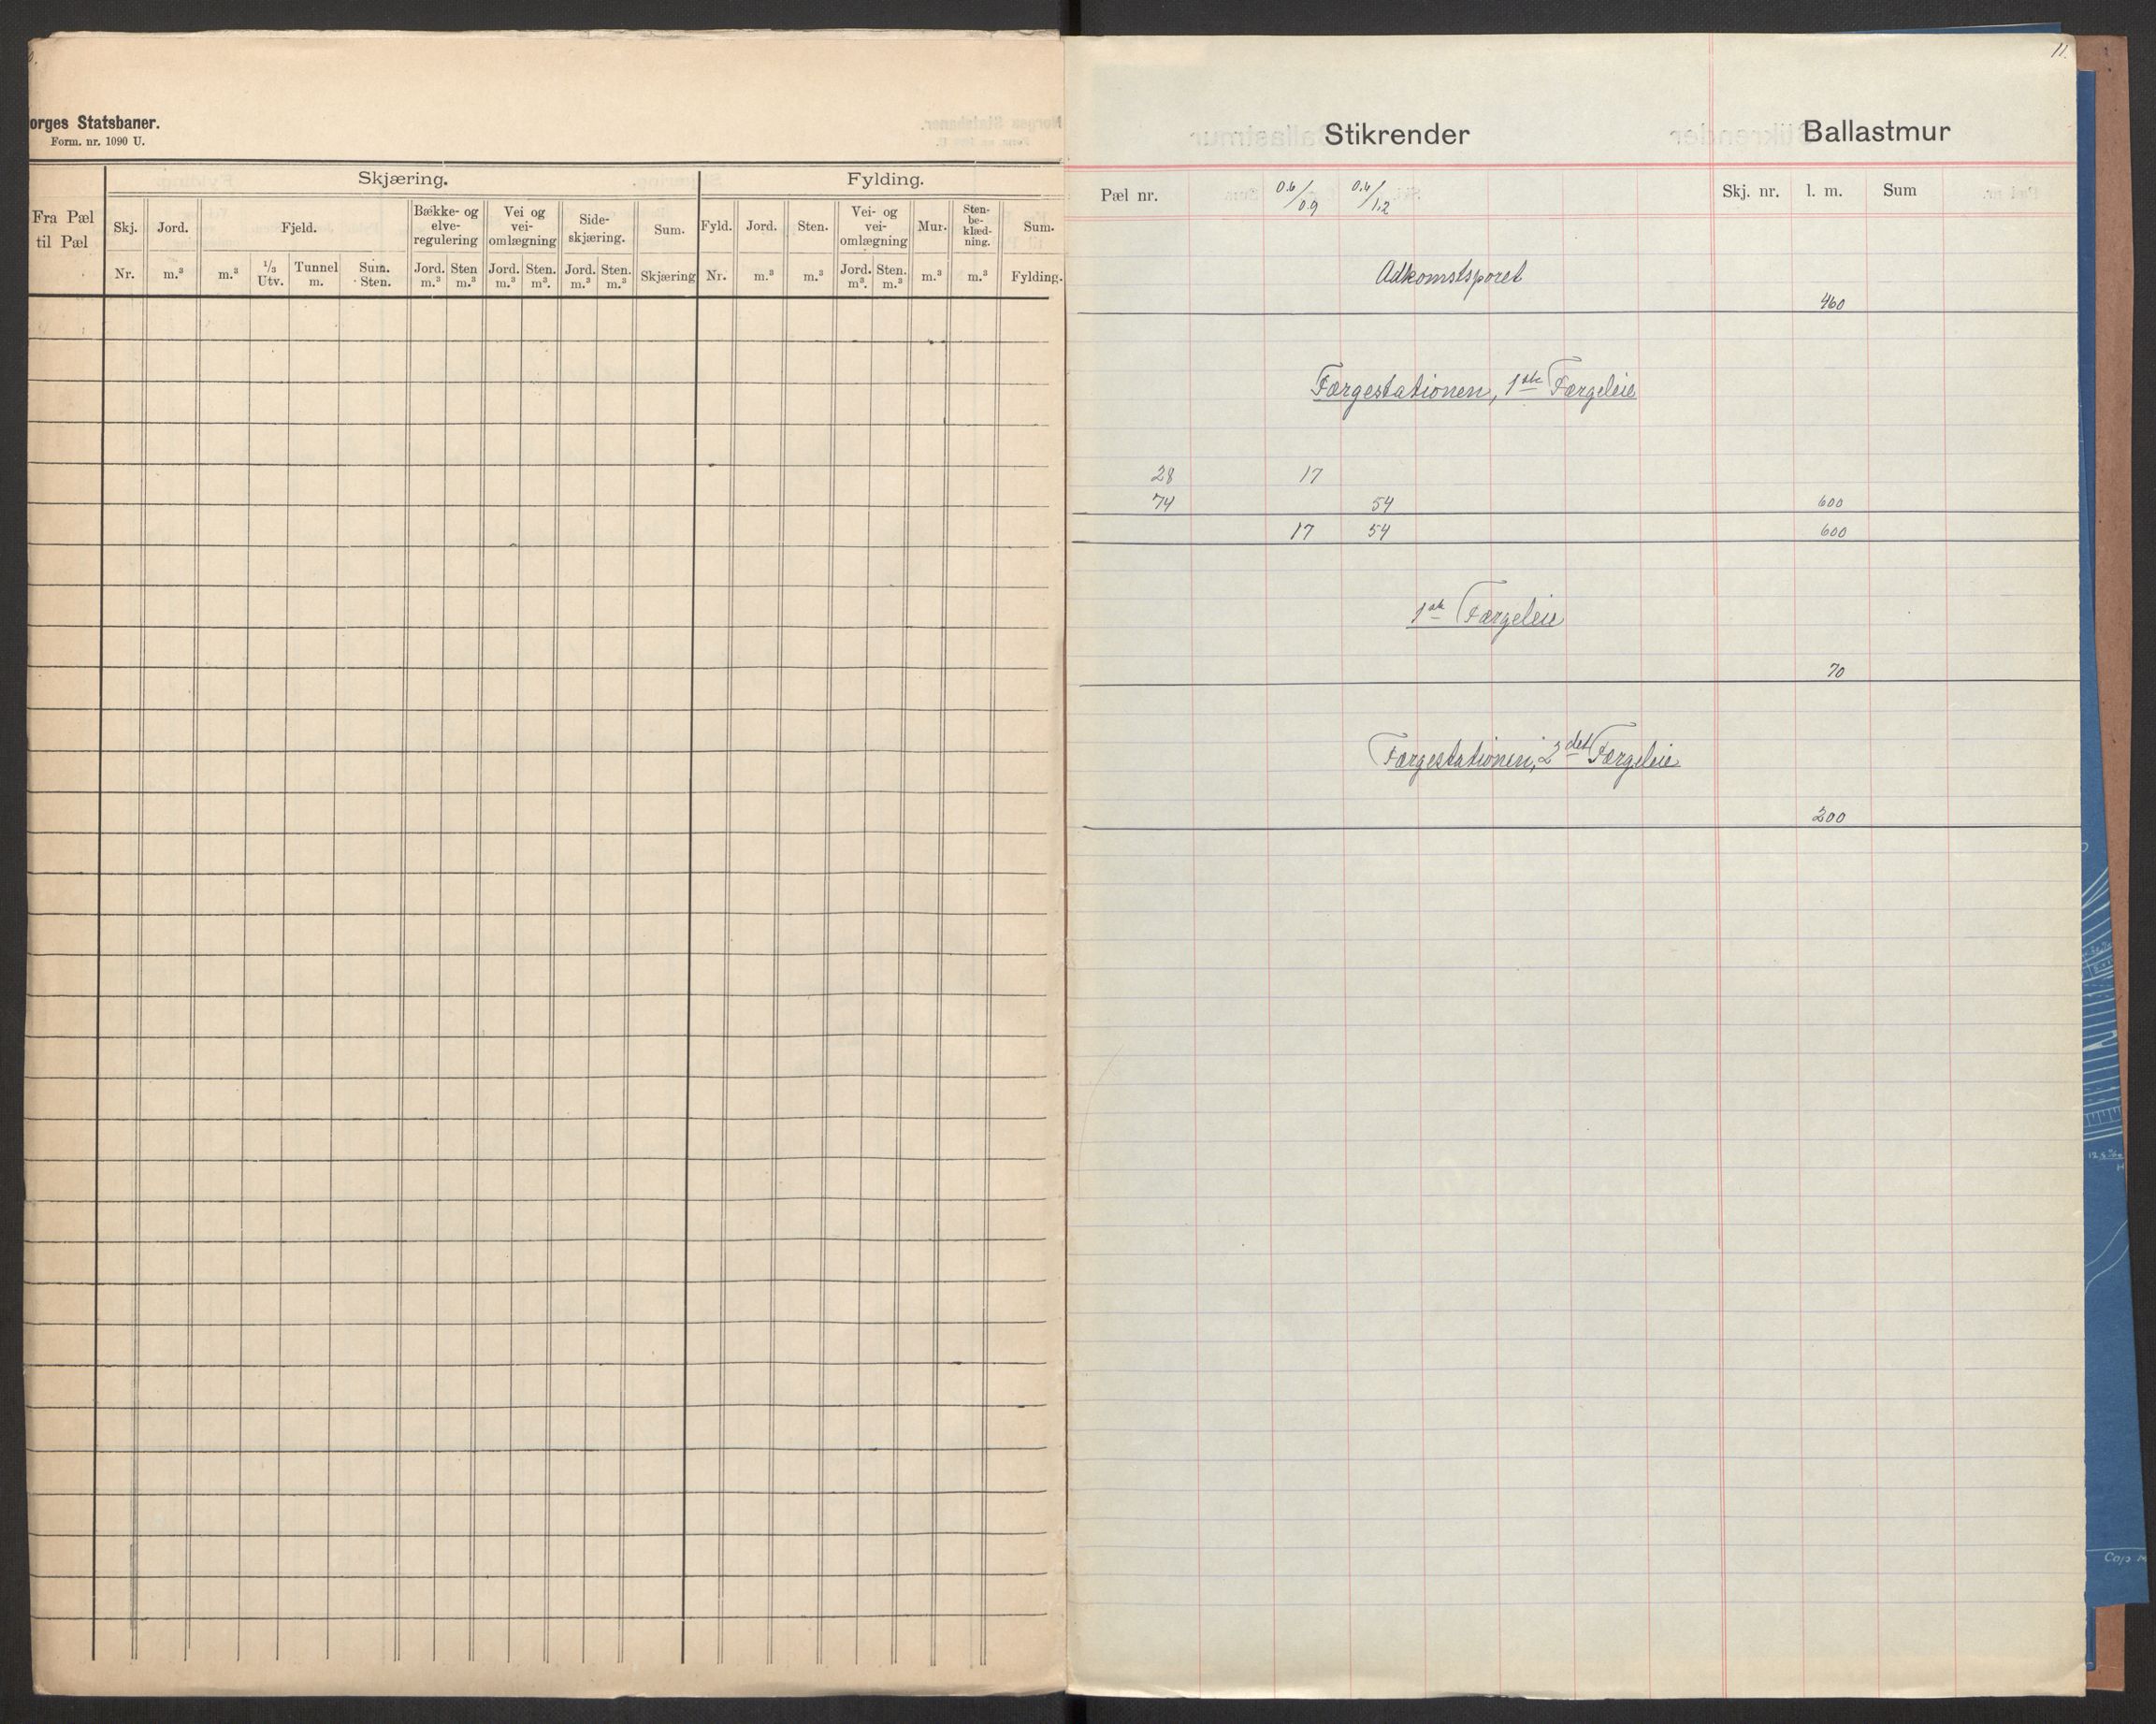 orges Statsbaner.
Form. nr. 1090 U.
Skjæring. Fylding.
Fra Pæl til Pæl
Skj. Jord. Fjeld. Bække- og elve- regulering Vei og vei- omlægning Side- skjæring. Sum. Fyld. Jord. Sten. Vei- og vei- omlægning Mur. Sten- be- klæd- ning. Sum.
Nr. m.³ m.³ 1/3 Utv. Tunnel m. Sum. Sten. Jord. m.³ Sten m.³ Jord. m.³ Sten. m³. Jord. m.³ Sten. m.³ Skjæring Nr. m.³ m.³ Jord. m³. Sten. m.³ m.³ m.³ Fylding.
11.
Stikrender Ballastmur
Pæl nr. 0.6/0.9 0.6/1.2 Skj. nr. l. m. Sum
Adkomstsporet
460
Færgestationen, 1ste Færgeleie
28 17
74 54 600
17 54 600
1ste Færgeleie
70
Færgestationen, 2det Færgeleie
200